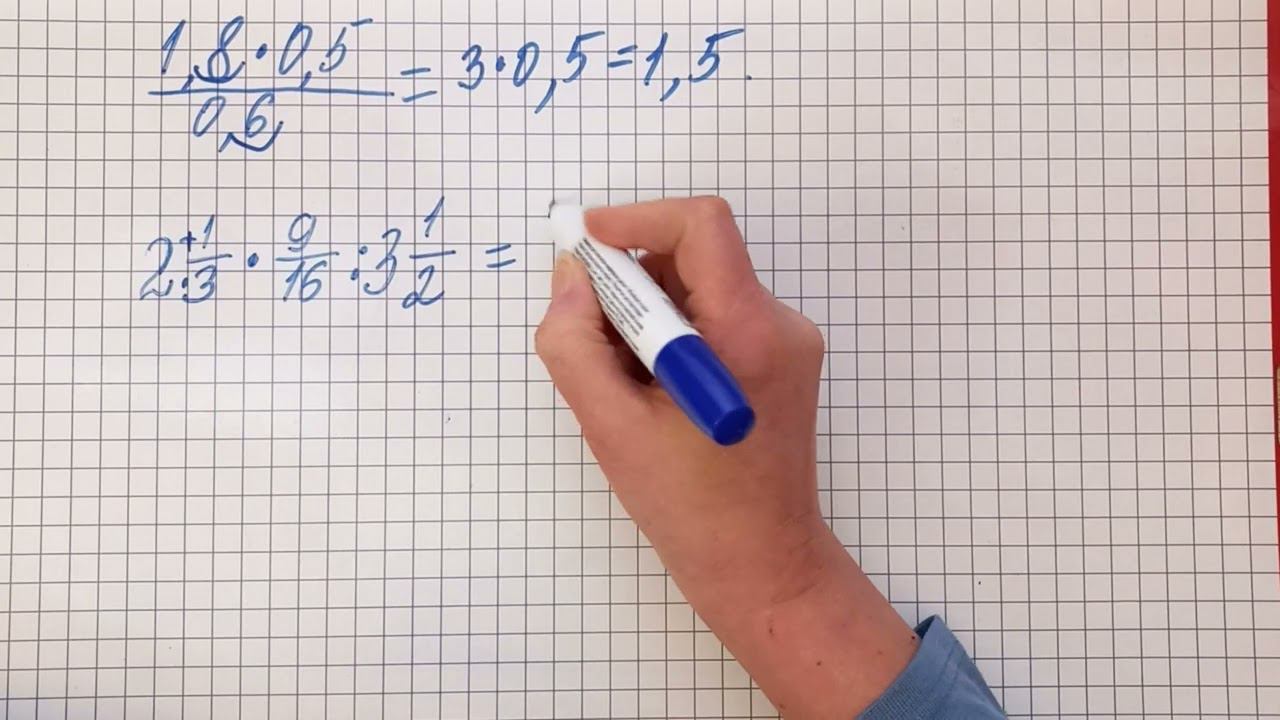 1,8·0,5/0,6 = 3·0,5=1,5.
2 1/3 · 9/16 : 3 1/2 =